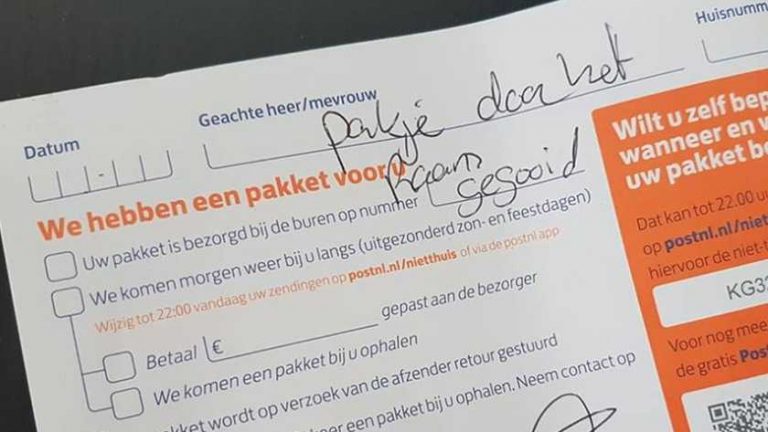 Huisnumm
Geachte heer/mevrouw
pakje door het
Datum
raam
gegooid
We hebben een pakket voor u
Uw pakket is bezorgd bij de buren op nummer
We komen morgen weer bij u langs (uitgezonderd zon- en feestdagen)
Wijzig tot 22:00 vandaag uw zendingen op postnl.nl/nietthuis of via de postnl app
Betaal € gepast aan de bezorger
We komen een pakket bij u ophalen
pakket wordt op verzoek van de afzender retour gestuurd
eer een pakket bij u ophalen. Neem contact op
Wilt u zelf bep
wanneer en w
uw pakket be
Dat kan tot 22.00 uu
op postnl.nl/nietthuis
hiervoor de niet-t
KG33
Voor nog mee
de gratis Post